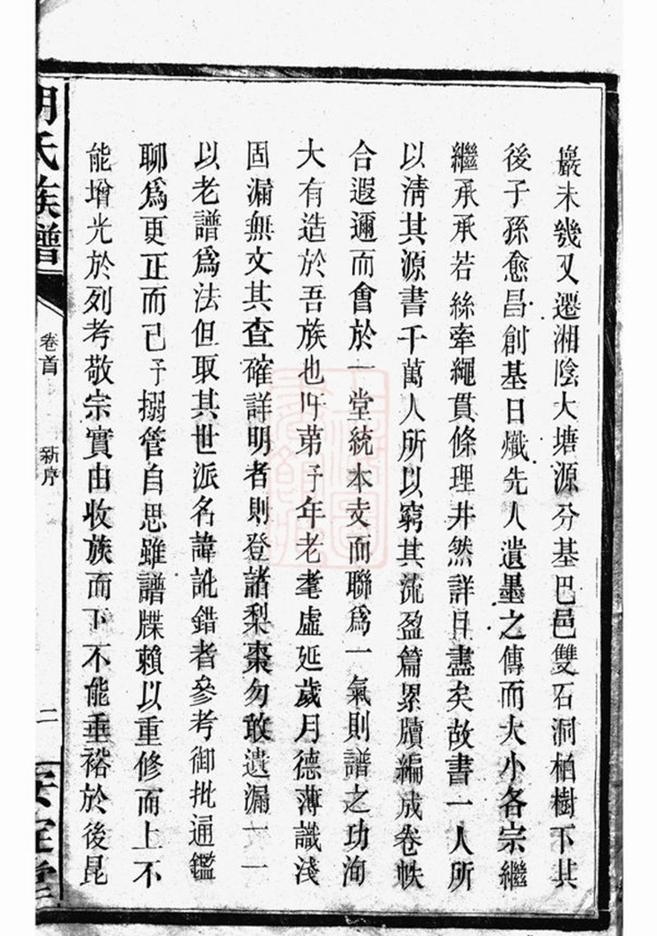 巖未幾又遷湘陰大塘源分基巴邑雙石洞柏樹下其
後子孫愈昌創基日熾先人遺墨之傳而大小各宗繼
繼承承若絲牽繩貫條理井然詳且盡矣故書一人所
以淸其源書千萬人所以窮其流盈篇累牘編成卷帙
合遐邇而會於一堂統本支而聯爲一氣則譜之功洵
大有造於吾族也吁苐予年老耄虛延歲月德薄識淺
固漏無文其查確詳明者則登諸梨棗勿敢遺漏一一
以老譜爲法但取其世派名諱訛錯者參考御批通鑑
聊爲更正而已予搦管自思雖譜牒賴以重修而上不
能增光於列考敬宗實由收族而下不能垂裕於後昆
胡氏族譜
卷首
新序
二
安定堂